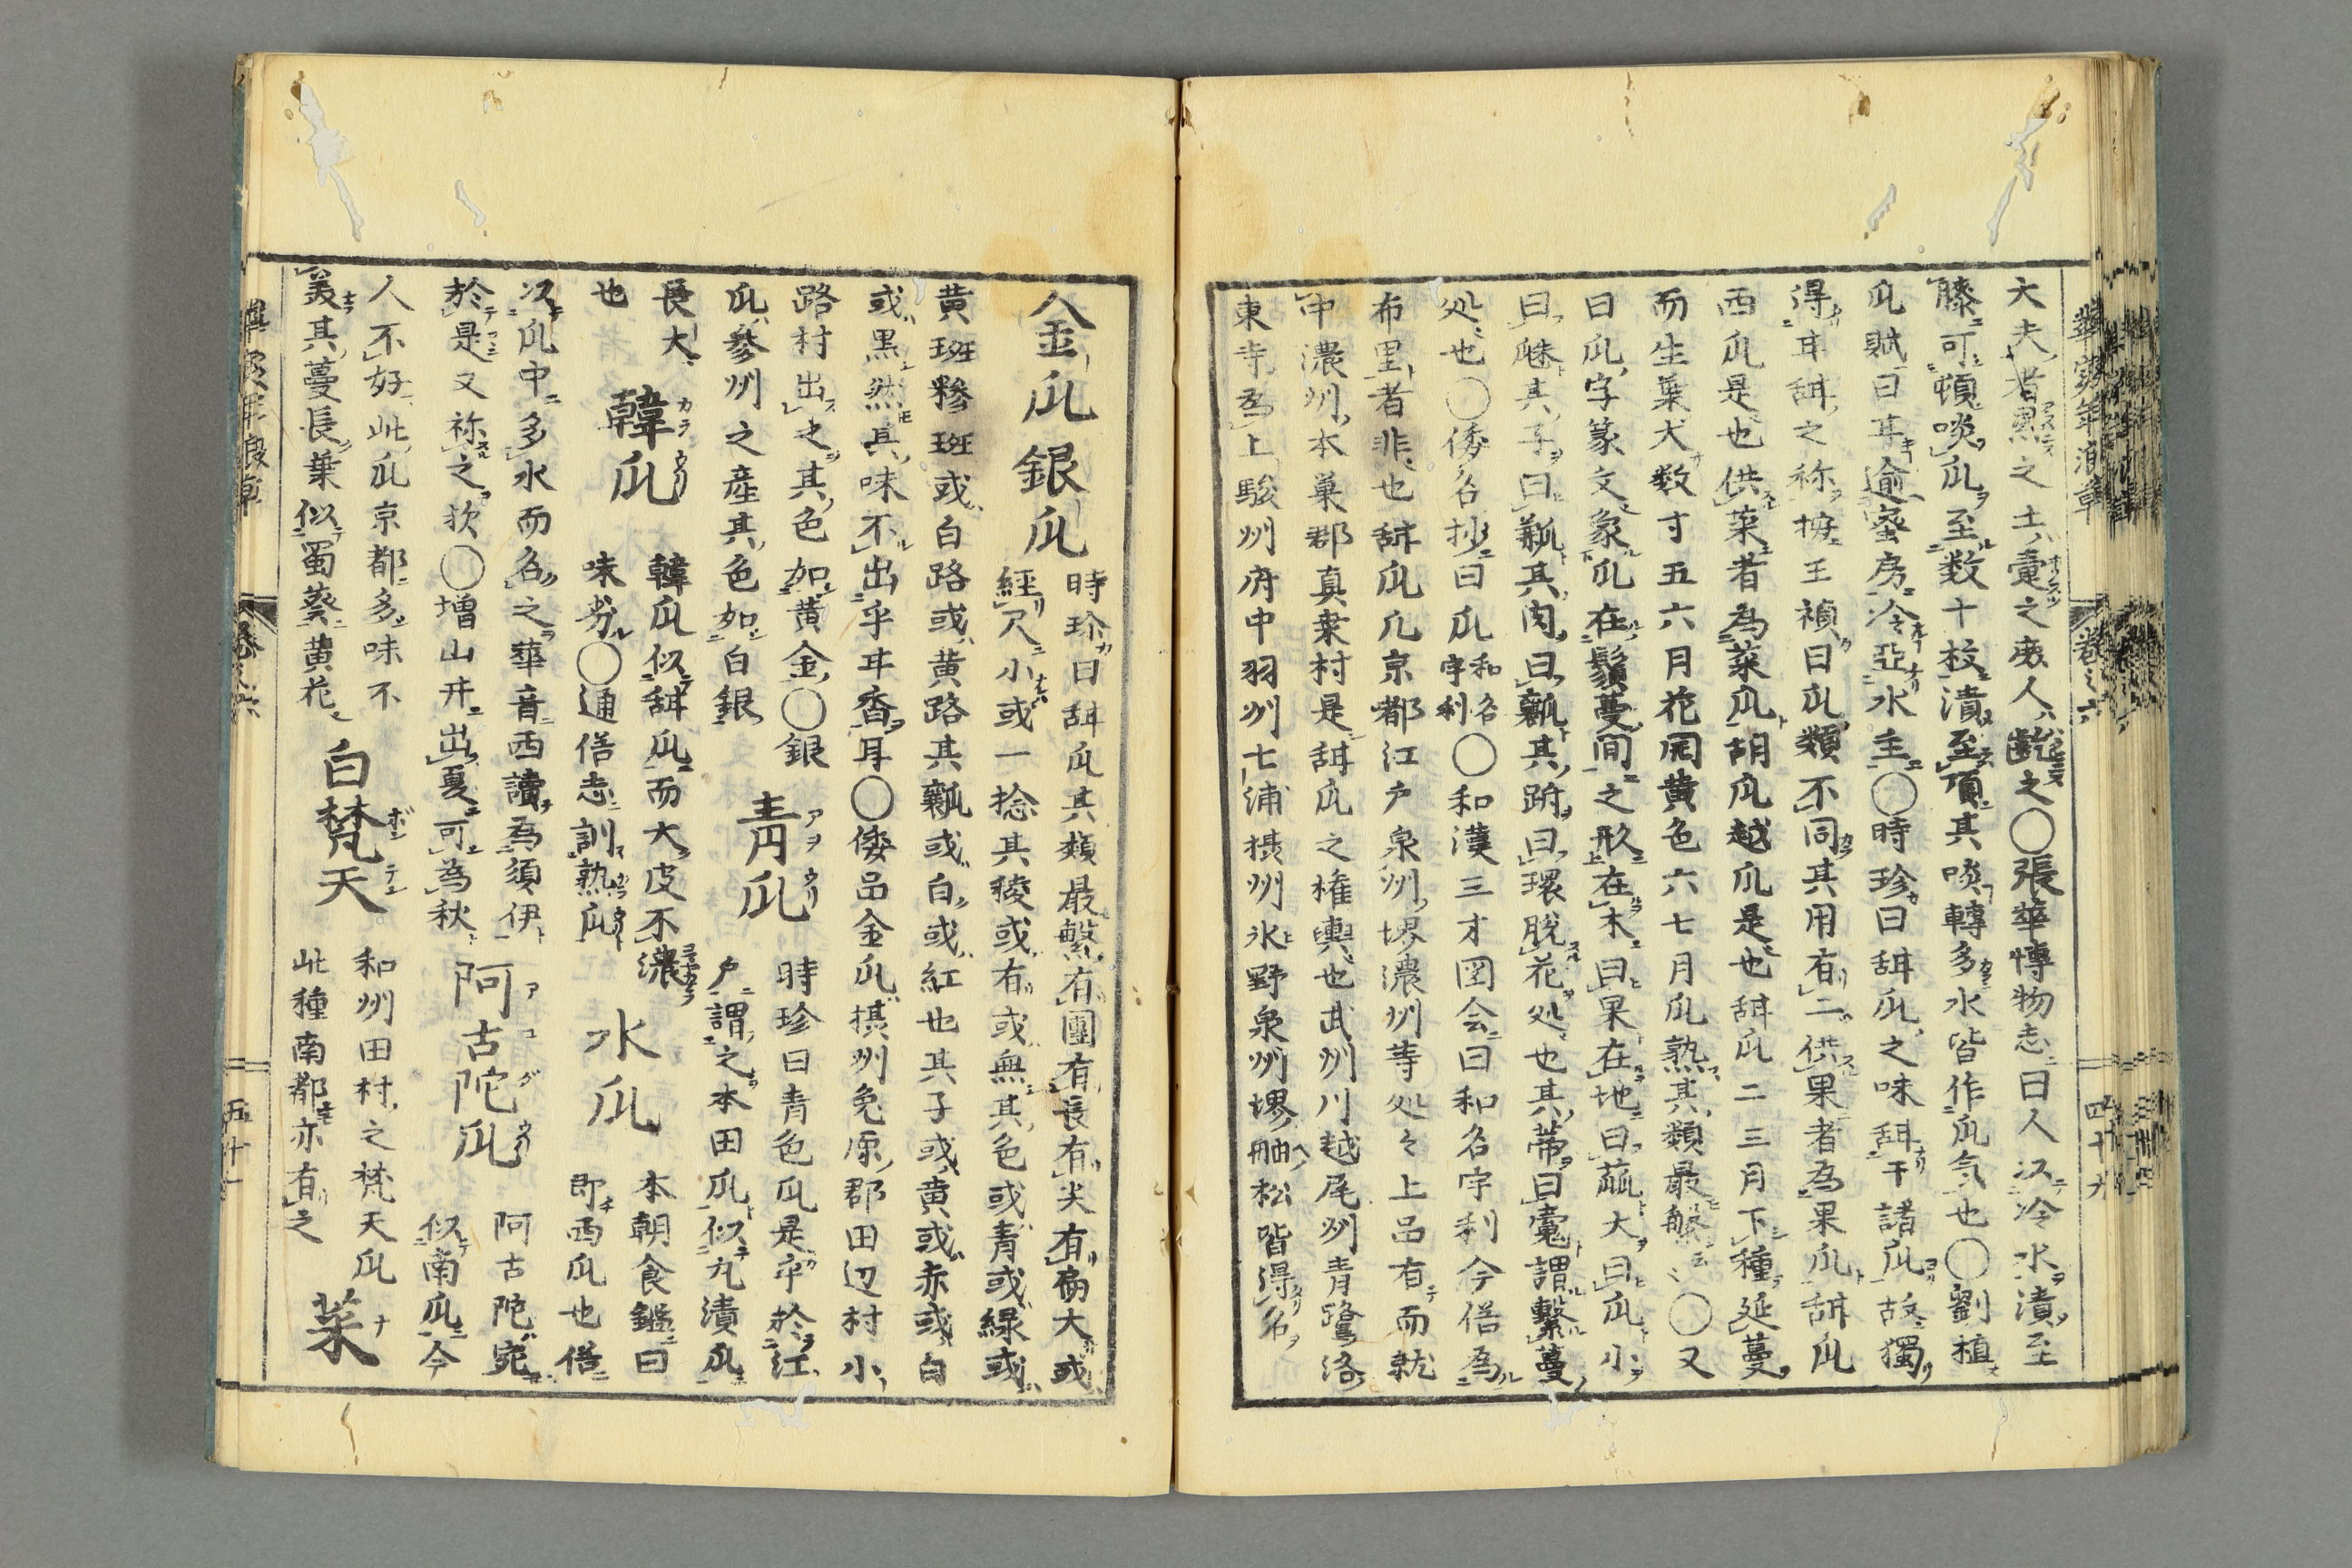 大夫者累之士疐之庶人齕之○張華博物志曰人以冷水漬至
膝可頓啖瓜至数十枚漬至頂其啖轉多水皆作瓜気也○劉植
瓜賦曰甘逾蜜房冷亞水圭○時珍曰甜瓜之味甜于諸瓜故獨
得甘甜之称按王禎曰瓜類不同其用有二供果者為果瓜甜瓜
西瓜是也供菜者為菜瓜胡瓜越瓜是也甜瓜二三月下種延蔓
而生葉大数寸五六月花開黄色六七月瓜熟其類最繁云々○又
曰瓜字篆文象瓜在鬚蔓間之形在木曰果在地曰蓏大曰瓜小
曰瓞其子曰㼓其肉曰瓤其跗曰環脱花処也其蒂曰疐謂繫蔓
処也○倭名抄曰瓜和名宇利○和漢三才図会曰和名宇利今俗為
布里者非也甜瓜凡京都江戸泉州堺濃州等処々上品有而就
中濃州本巣郡真桑村是甜瓜之権輿也武州川越尾州青鷺洛
東寺為上駿州府中羽州七浦摂州氷野泉州堺舳松皆得名
華実年浪草 巻之六 四十九
金瓜銀瓜 時珍曰甜瓜其類最繁有團有長有尖有扁大或
經尺小或一捻其稜或有或無其色或青或緑或
黄斑糝斑或白路或黄路其瓤或白或紅也其子或黄或赤或白
或黒然其味不出乎甘香耳○倭品金瓜摂州免原郡田辺村小
路村出之其色如黄金○銀
瓜参州之産其色如白銀
青瓜 時珍曰青色瓜是卒於江
戸謂之本田瓜似九漬瓜
長大
也
韓瓜 韓瓜似甜瓜而大皮不濃
味劣○通俗志訓熟瓜
水瓜 本朝食鑑曰
即西瓜也俗
以瓜中多水而名之華音西讀為須伊
於是又称之欤○増山井出夏可為秋
阿古陀瓜 阿古陀宛
似南瓜今
人不好此瓜京都多味不
美其蔓長葉似蜀葵黄花
白梵天 和州田村之梵天瓜
此種南都亦有之
菜
巻之六 五十